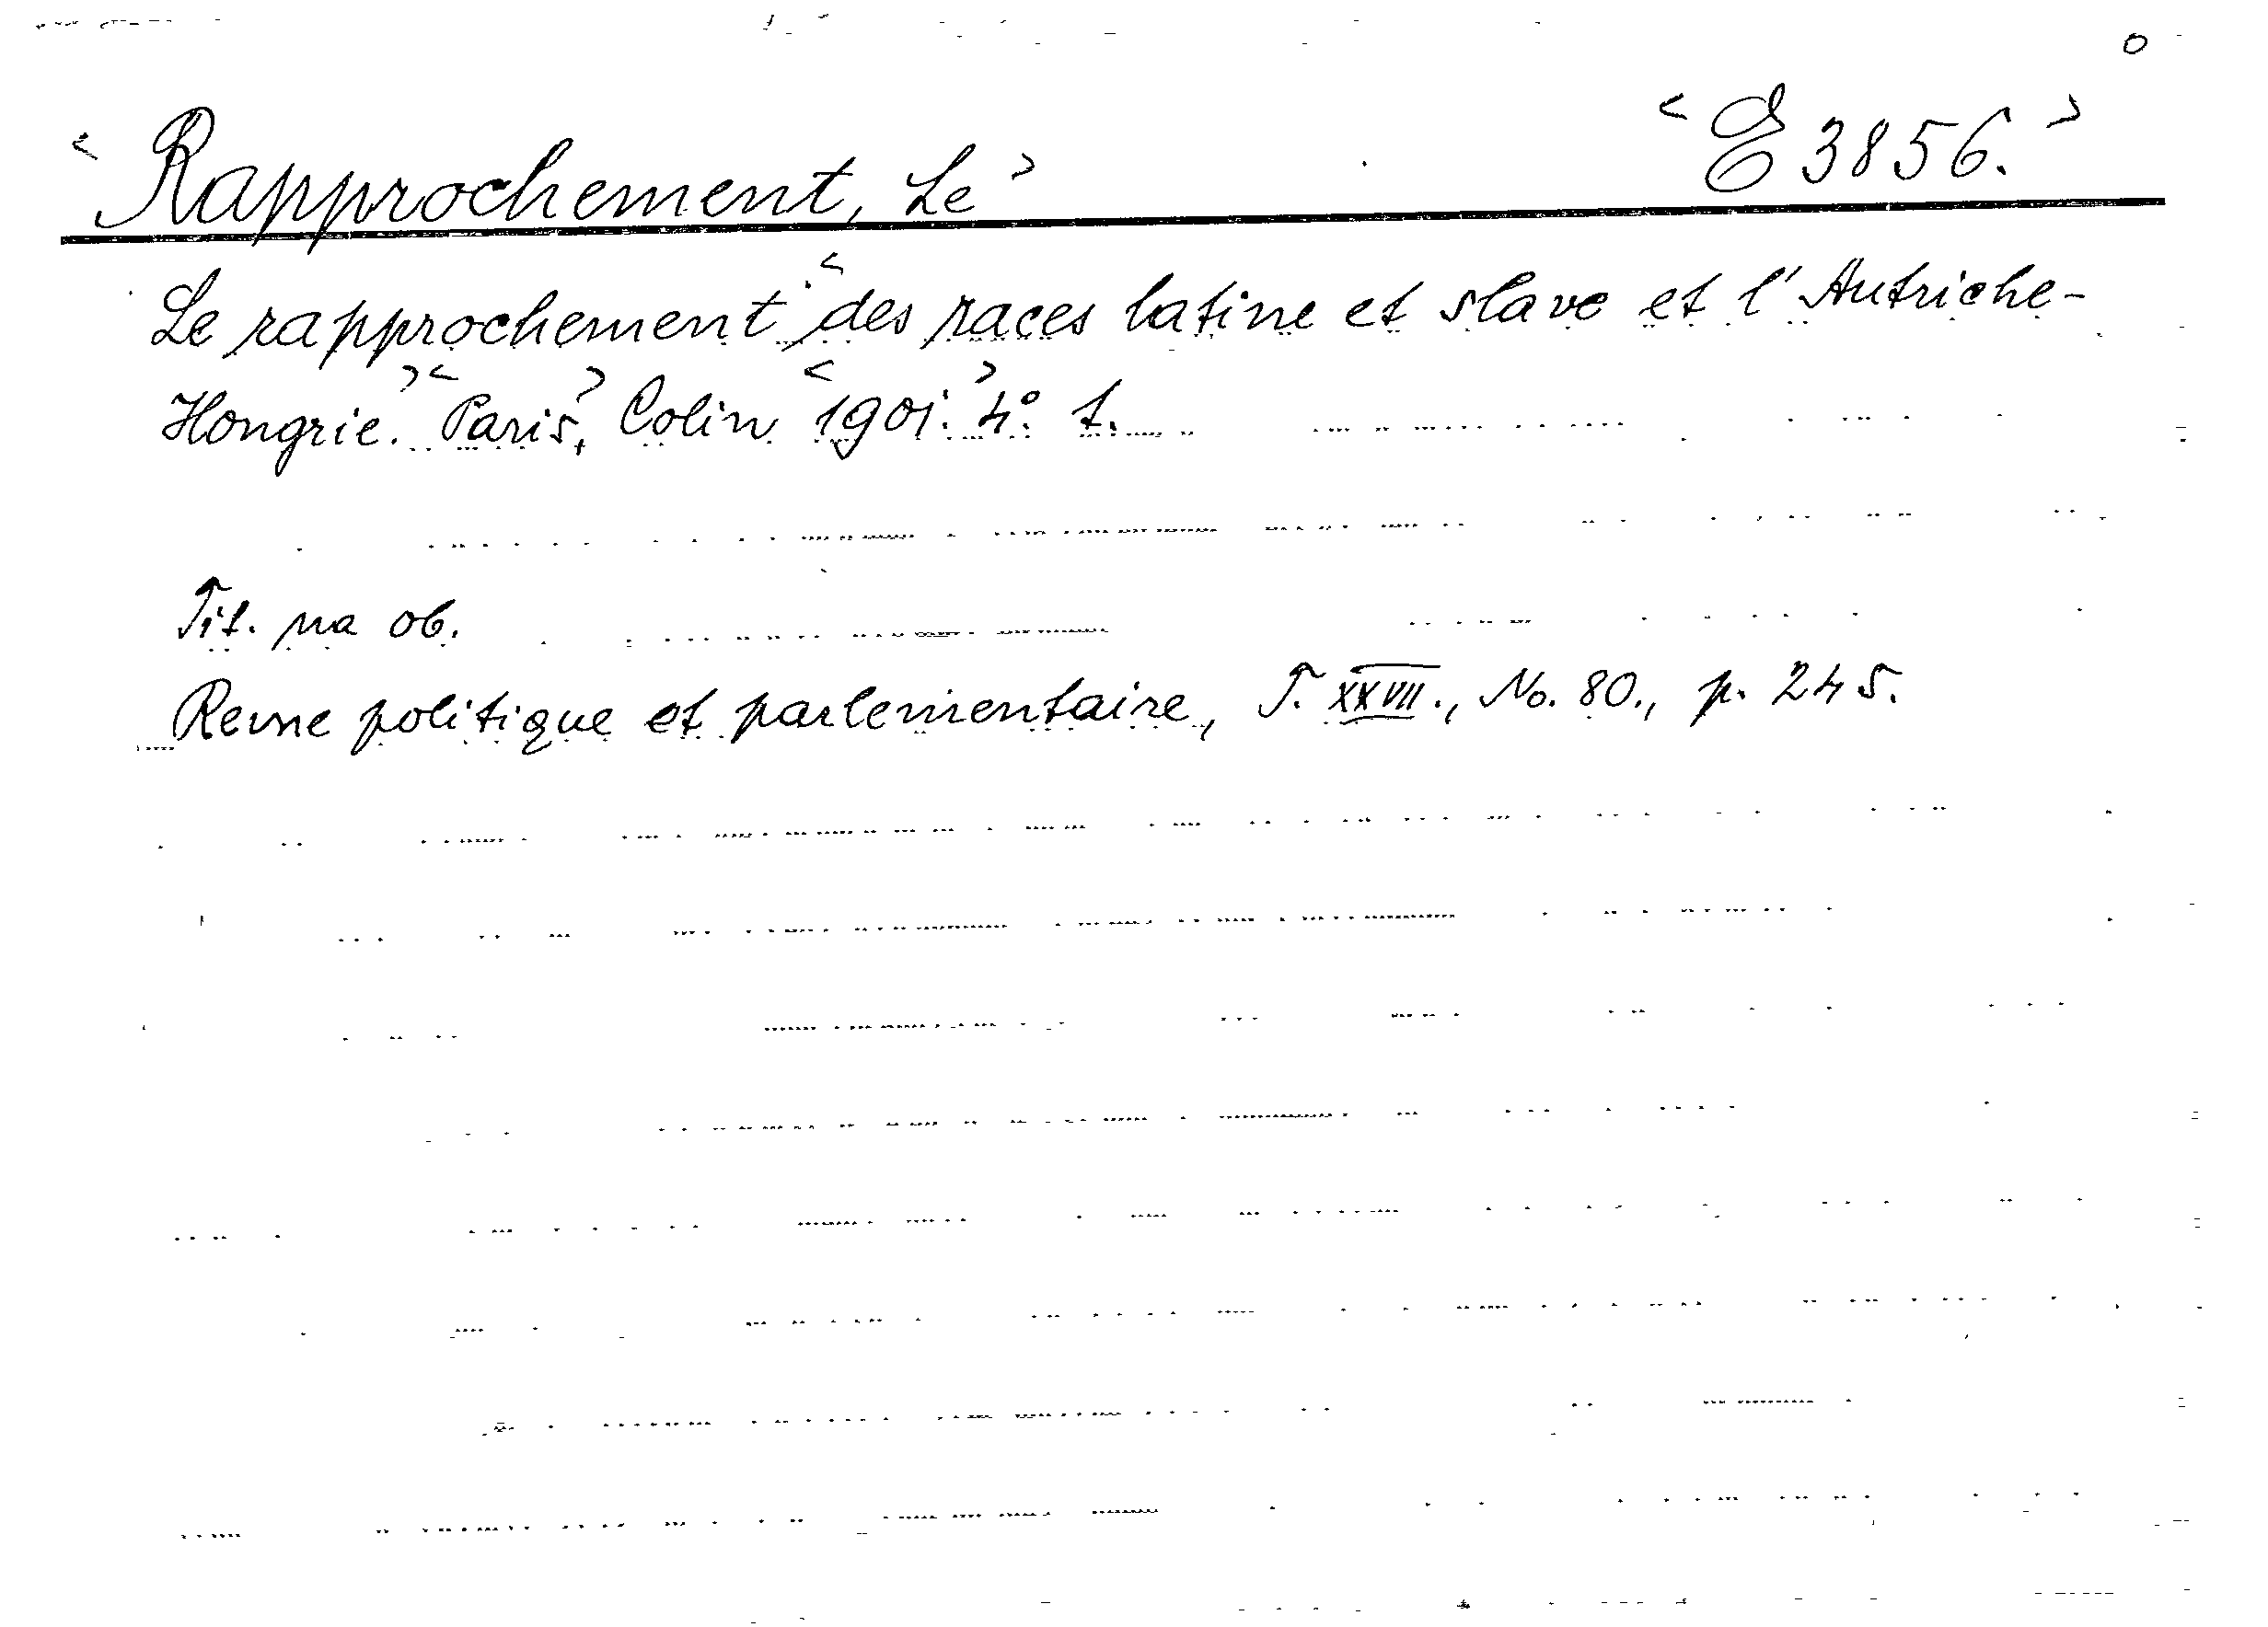 o
‹Rapprochement, Le› ‹E 3856.›
Le rapprochement ‹des races latine et slave et l'Autriche-
Hongrie.› ‹Paris›, Colin ‹1901.› 4°. 1.
Tit. na ob.
Revue politique et parlementaire, T. XXVII., No. 80., p. 245.